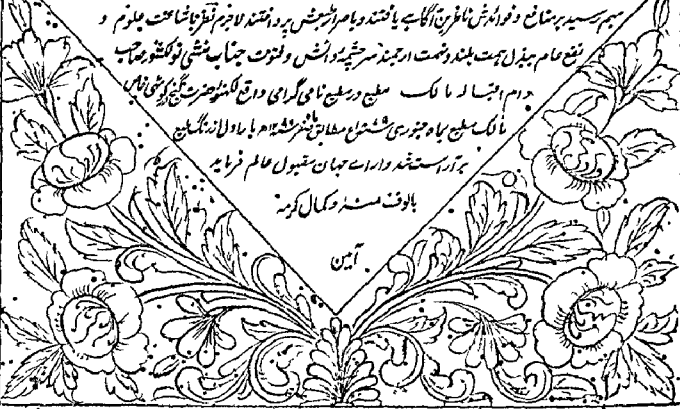 بہم رسید بر منافع و فوائدش ناظرین آگاہے یافتند و باصرار طبعش پرداختند لاجرم نظر باشاعت علوم و
نفع عام ببذل ہمت بلند و نہمت ارجمند سرچشمہ دانش و فتوت جناب منشی نولکشور صاحب
دام اقبالہ مالک مطبع در مطبع نامی گرامی واقع لکھنؤ حضرت گنج
مالک مطبع بماہ جنوری مطابق بار اول از رنگ طبع
برآراست خداوند اراے جہان مقبول عالم فرماید
بالوف منہ و کمال کرمہ
آمین